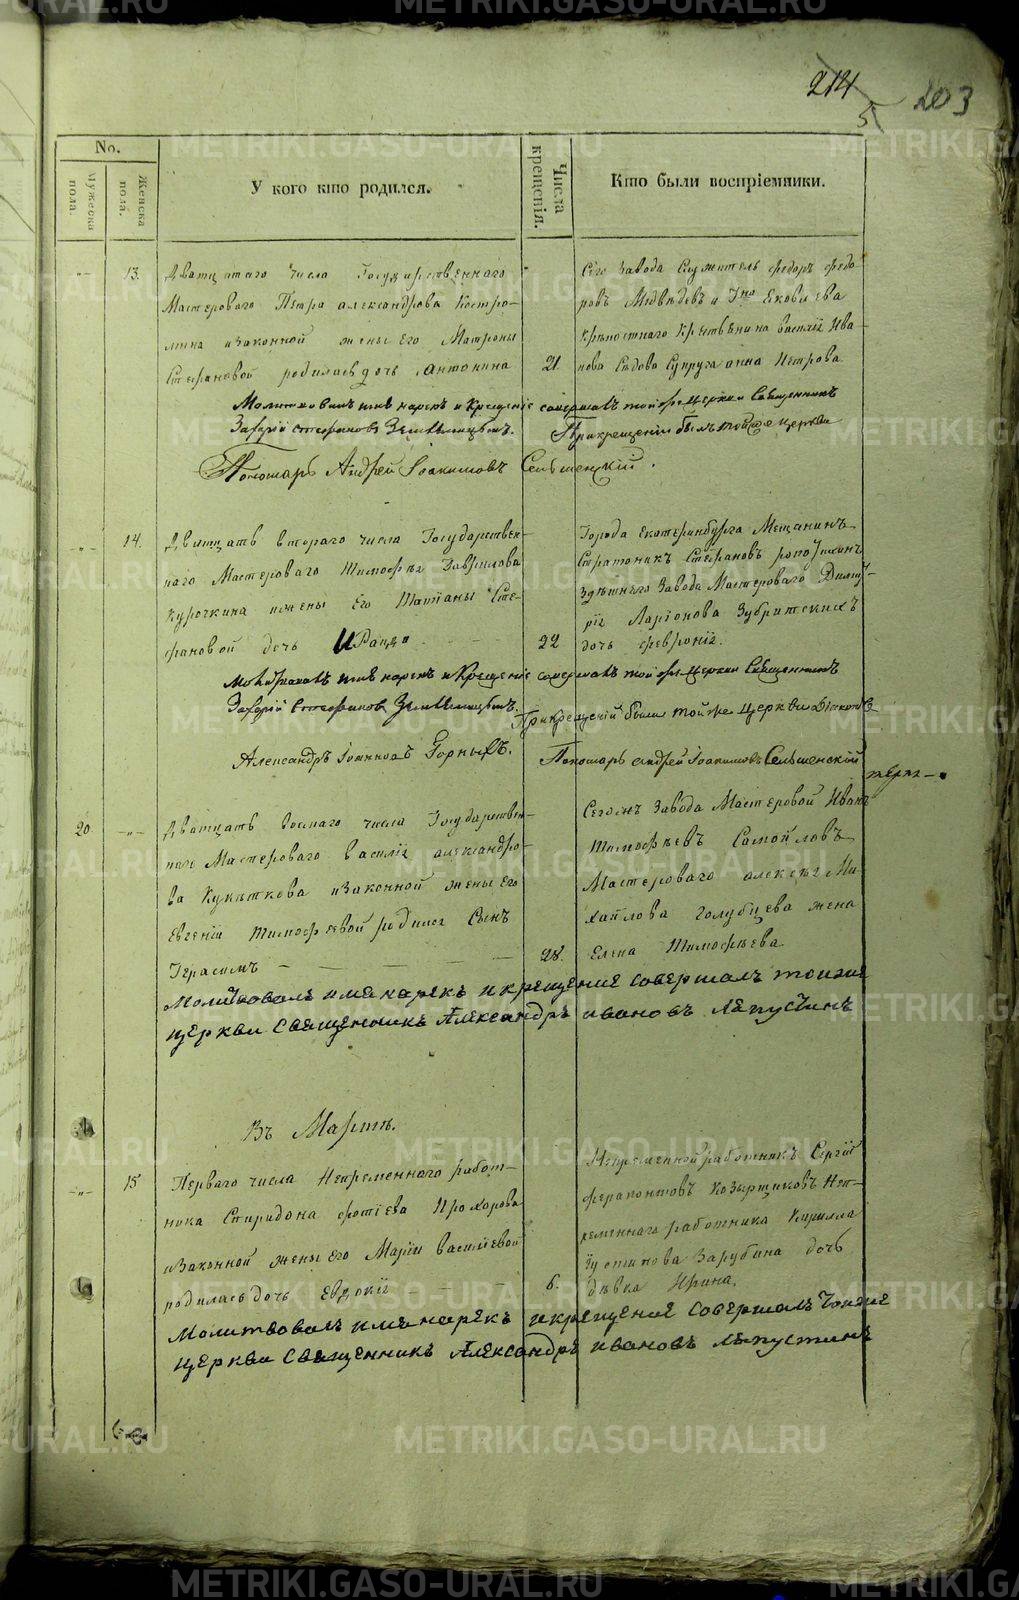 214
5
203
No.
Мужеска пола.
Женска пола.
У кого кто родился.
Числа крещенія.
Кто были воспріемники.
13.
Дватцатаго числа Государственнаго
Мастероваго Петра александрова Костро-
мина изаконной жены его Матроны
Стефановой родиласъ дочь Антонина
21
Сего Завода Служитель Федоръ Федо-
ровъ Медвѣдевъ и Яковлева
крѣпостнаго Крестьянина василія Ива-
нова Сѣдова Супруга анна Петрова
Молитвовалъ имя нарекъ и Крещеніе совершалъ той же Церкви Священникъ
Захарій стефановъ
При крещеніи былъ тойже церкви
Пономарь Андрей Іоакимовъ Сельменскій.
14.
Дватцать втораго числа Государствен-
наго Мастероваго Тимофея Гаврилова
Курочкина ижены Его Татіаны Сте-
фановой дочь Ираида
22
Города екатеринбурга Мещанинъ
Стратоникъ Стефановъ
Здѣшняго Завода Мастероваго Дмит-
рія Ларіонова Зубритскихъ
дочь феврония.
Молитвовалъ имя нарекъ и Крещеніе совершалъ той же Церкви Священникъ
Захарій Стефановъ
При крещеніи были той же Церкви Діаконъ
Александръ Іоанновъ Горныхъ.
Пономарь андрей Іоакимовъ Сельменскій
20
Дватцать восмаго числа Государствен-
наго Мастероваго василія александро-
ва Кукѣткова изаконной жены его
Евгеніи тимофеевой родился Сынъ
Герасимъ
28.
Сегожъ Завода Мастеровой Иванъ
тимофѣевъ Самойловъ
Мастероваго алексѣя Ми-
хайлова Голубцева жена
Елена Тимофѣева.
Молитвовалъ имя нарекъ и крещение совершалъ тоиже
церкви священникъ Александръ ивановъ Ляпустинъ
Въ Мартѣ.
15
Перваго числа Непременнаго работ-
ника Спиридона фотіева Прохорова
изаконной жены его Маріи васильевой
родиласъ дочь Евдокія
6.
Непременной работникъ Сергій
ферапонтовъ Козырщиковъ Неп-
ременнаго работника Кирилла
Іустинова Зарубина дочь
дѣвка Ирина.
Молитвовалъ имя нарекъ и крещение совершалъ тоиже
церкви священникъ Александръ ивановъ Ляпустинъ
METRIKI.GASO-URAL.RU